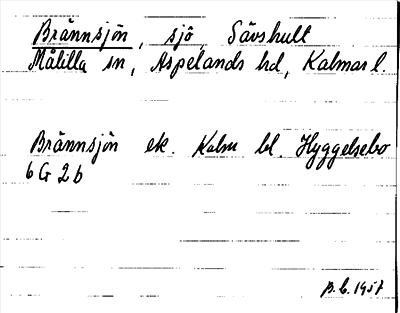 Brännsjön, sjö, Sävshult
Målilla sn, Aspelands hd, Kalmar l.
Brännsjön ek. Kalm bl. Hyggelsebo
6 G 2 b
B.L. 1957